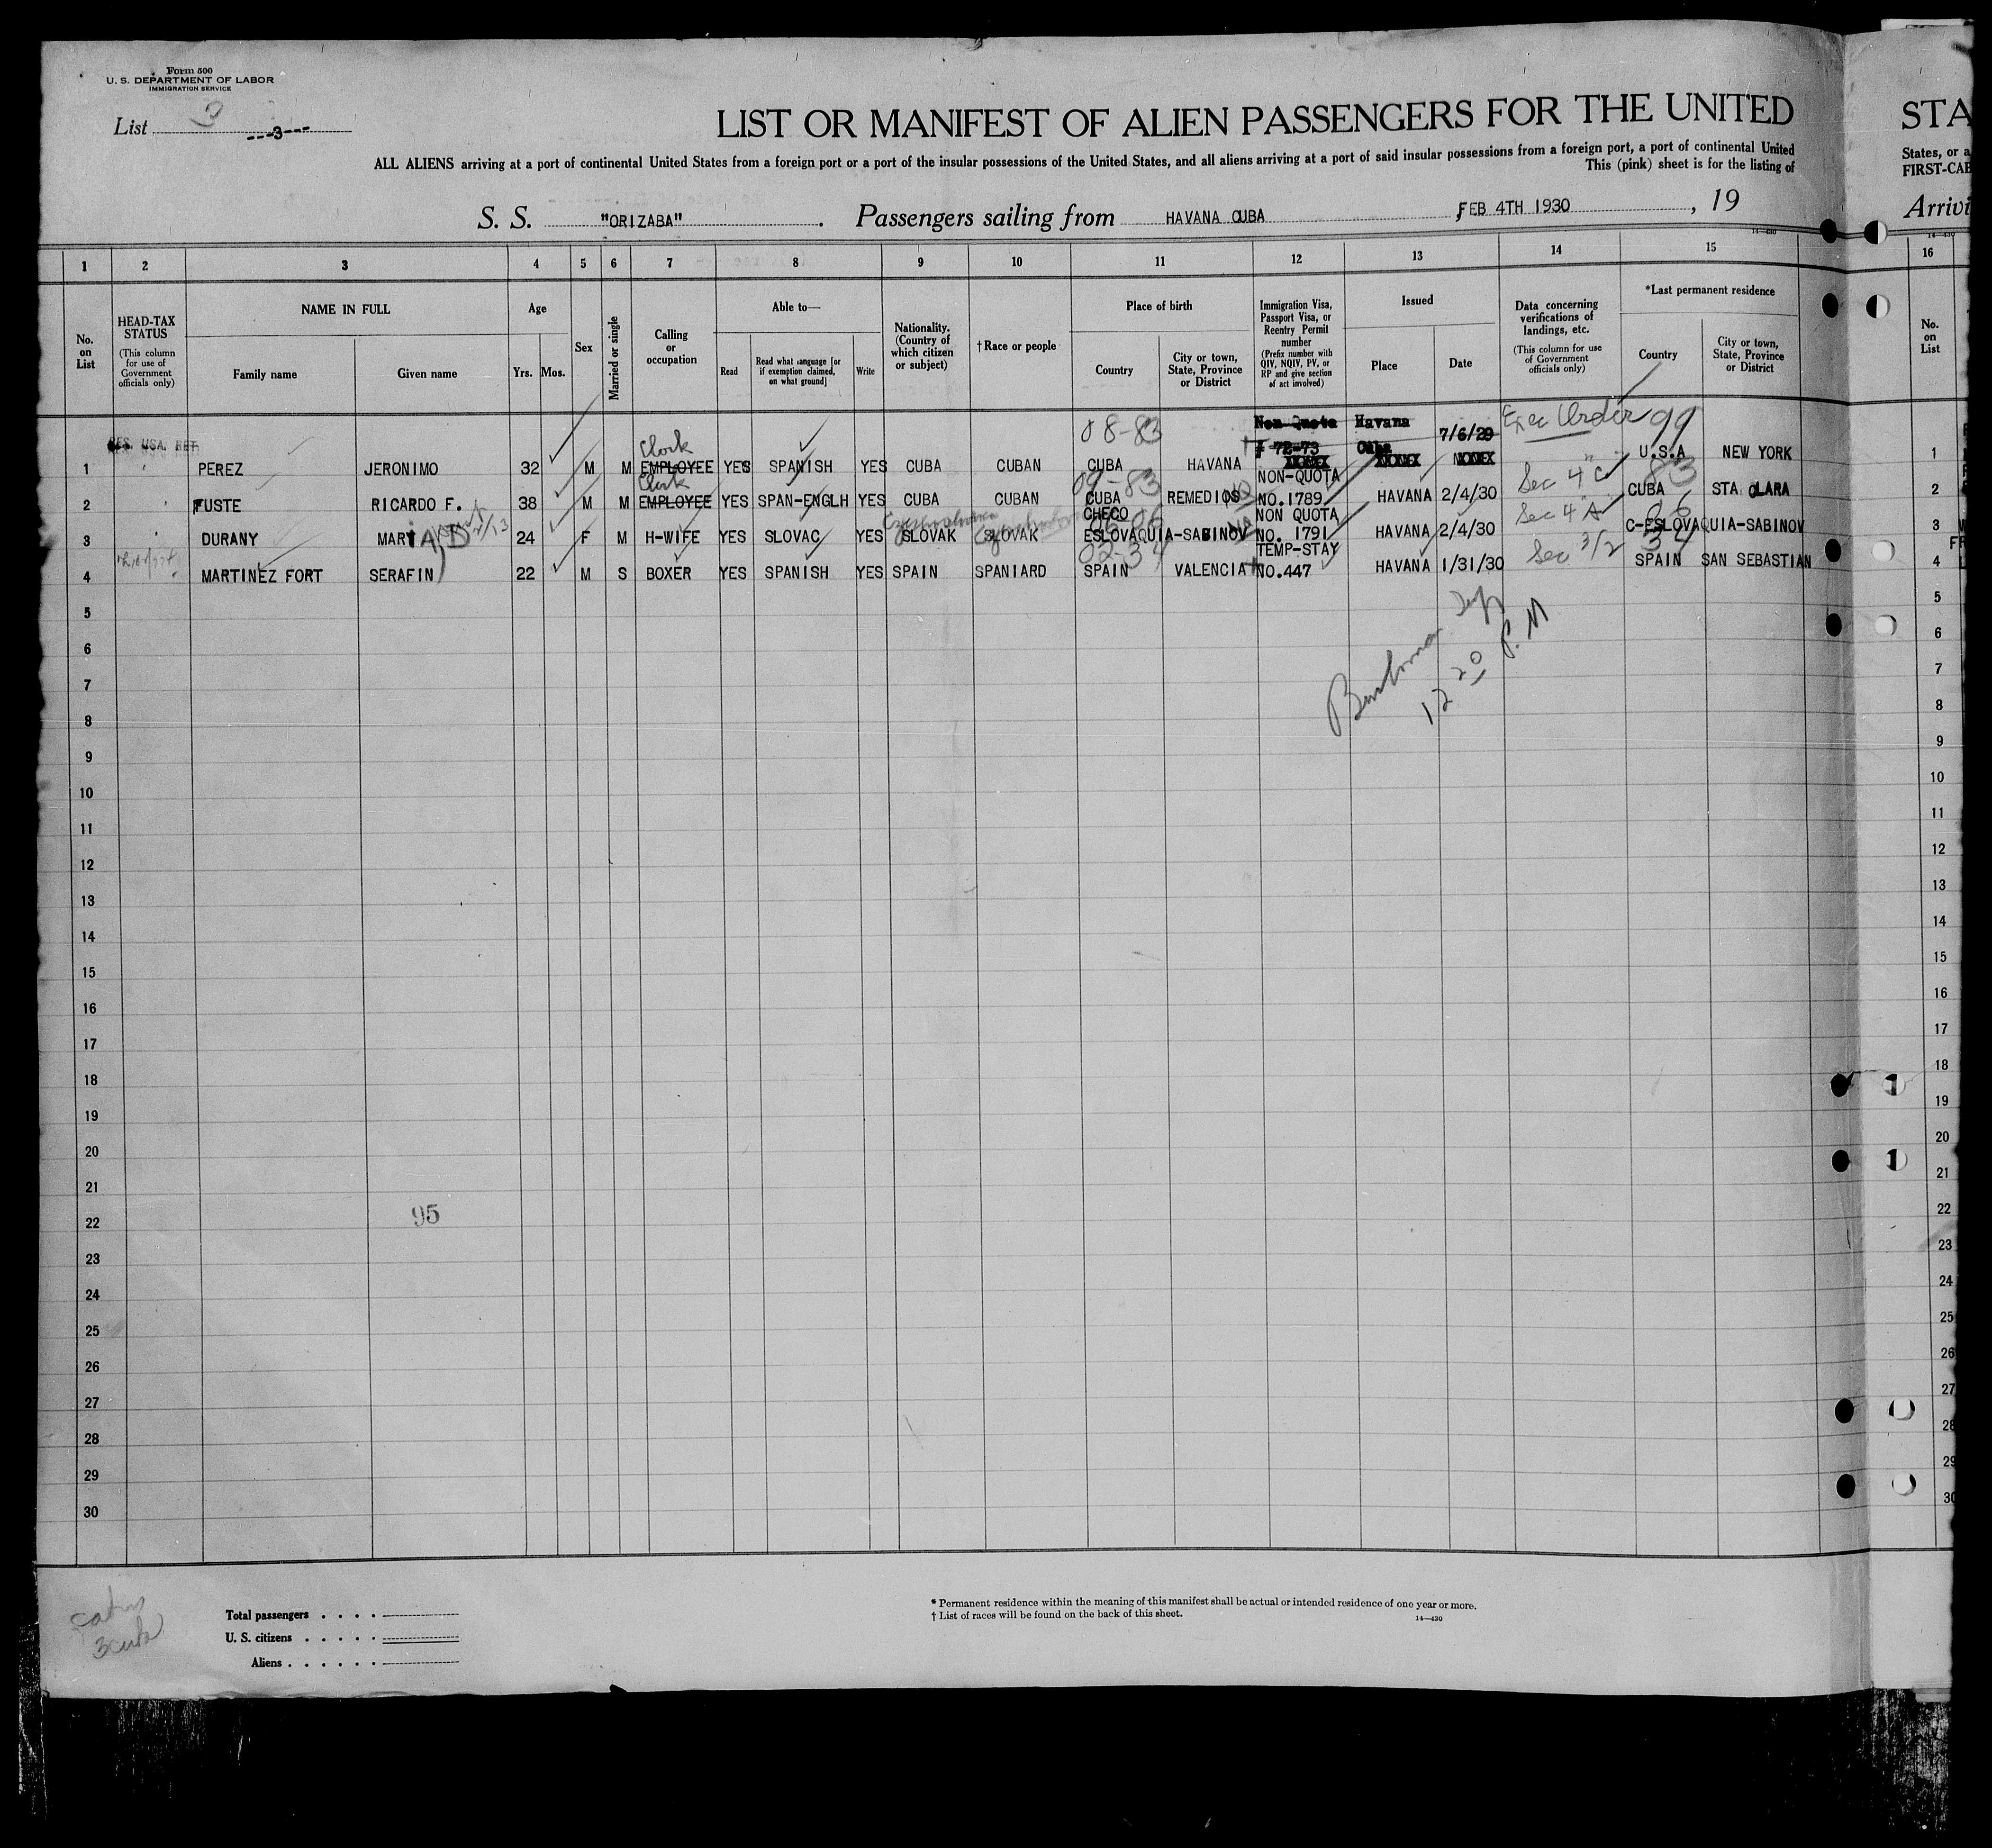 Form 500
U. S. DEPARTMENT OF LABOR
IMMIGRATION SERVICE
List 3 ---3---
LIST OR MANIFEST OF ALIEN PASSENGERS FOR THE UNITED STA
ALL ALIENS arriving at a port of continental United States from a foreign port or a port of the insular possessions of the United States, and all aliens arriving at a port of said insular possessions from a foreign port, a port of continental United States, or a
This (pink) sheet is for the listing of FIRST-CAB
S. S. "ORIZABA". Passengers sailing from HAVANA CUBA, FEB 4TH 1930, 19 Arrivi
14-430 14-430
1 2 3 4 5 6 7 8 9 10 11 12 13 14 15 16
No. on List
HEAD-TAX STATUS (This column for use of Government officials only)
NAME IN FULL Family name Given name
Age Yrs. Mos.
Sex
Married or single
Calling or occupation
Able to— Read Read what language [or if exemption claimed, on what ground] Write
Nationality. (Country of which citizen or subject)
†Race or people
Place of birth Country City or town, State, Province or District
Immigration Visa, Passport Visa, or Reentry Permit number (Prefix number with QIV, NQIV, PV, or RP and give section of act involved)
Issued Place Date
Data concerning verifications of landings, etc. (This column for use of Government officials only)
*Last permanent residence Country City or town, State, Province or District
No. on List
08-83 Non Quota Havana 7/6/29 Exec Order 99
RES. USA. RET. Clerk # 72-73 Cuba
1 PEREZ JERONIMO 32 M M EMPLOYEE YES SPANISH YES CUBA CUBAN CUBA HAVANA XXXXX XXXXX XXXXX U.S.A NEW YORK 1
Clerk 09-83 NON-QUOTA Sec 4 C 83
2 FUSTE RICARDO F. 38 M M EMPLOYEE YES SPAN-ENGLH YES CUBA CUBAN CUBA REMEDIOS NO.1789 HAVANA 2/4/30 CUBA STA CLARA 2
Czechoslovakia CHECO 06-06 NON QUOTA Sec 4 A 06
3 DURANY MARIA D 24 F M H-WIFE YES SLOVAC YES SLOVAK SLOVAK ESLOVAQUIA-SABINOV NO. 1791 HAVANA 2/4/30 C-ESLOVAQUIA-SABINOV 3
02-34 TEMP-STAY Sec 3/2 34
4 MARTINEZ FORT SERAFIN 22 M S BOXER YES SPANISH YES SPAIN SPANIARD SPAIN VALENCIA NO.447 HAVANA 1/31/30 SPAIN SAN SEBASTIAN 4
5 5
6 6
7 7
12 20 P. M
8 8
9 9
10 10
11 11
12 12
13 13
14 14
15 15
16 16
17 17
18 18
19 19
20 20
21 21
22 95 22
23 23
24 24
25 25
26 26
27 27
28 28
29 29
30 30
Total passengers
U. S. citizens
Aliens
* Permanent residence within the meaning of this manifest shall be actual or intended residence of one year or more.
† List of races will be found on the back of this sheet.
14—430